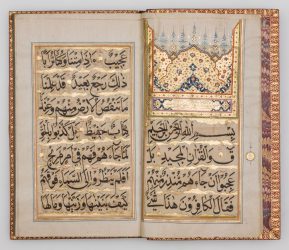 بسم الله الرحمن الرحيم
ق والقرآن المجيد بل
عجبوا أن جاءهم منذر منهم
فقال الكافرون هذا شيء
عجيب ءاذا متنا وكنا ترابا
ذلك رجع بعيد قد علمنا
ما تنقص الارض منهم وعندنا
كتاب حفيظ بل كذبوا بالحق
لما جاءهم فهم في امر مريج
افلم ينظروا الى السماء فوقهم
كيف بنيناها وزيناها وما لها